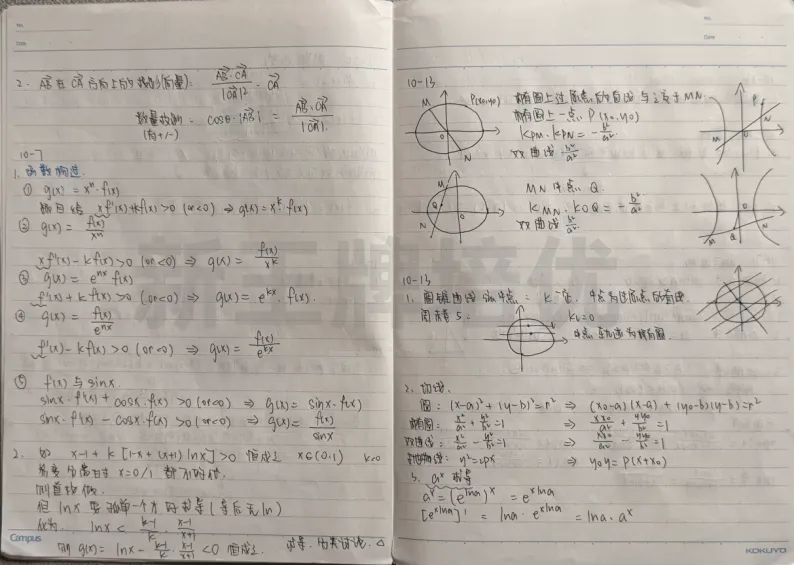 No.
Date
2. AB在CA方向上的投影(向量): AB·CA / |CA|² · CA
数量投影 = cosθ·|AB| = AB·CA / |CA|
(有+/-)
10-7
1. 函数构造.
① g(x) = xⁿ·f(x)
xf'(x)+kf(x)>0 (or<0) ⇒ g(x)=x^k·f(x)
② g(x) = f(x)/xⁿ
xf'(x)-kf(x)>0 (or<0) ⇒ g(x) = f(x)/x^k
③ g(x) = e^{nx} f(x)
f'(x)+kf(x)>0 (or<0) ⇒ g(x) = e^{kx}·f(x).
④ g(x) = f(x)/e^{nx}
f'(x)-kf(x)>0 (or<0) ⇒ g(x) = f(x)/e^{kx}
⑤ f(x)与sinx.
sinx·f'(x)+cosx·f(x)>0 (or<0) ⇒ g(x) = sinx·f(x)
sinx·f'(x)-cosx·f(x)>0 (or<0) ⇒ g(x) = f(x)/sinx
2. 如 x-1+k[1-x+(x+1)lnx]>0 恒成立 x∈(0,1) k<0
x=0/1 都不
则直接
但 lnx 要 单一个才好求导 (导后无ln)
化为 lnx < (k-1)/k · (x-1)/(x+1)
则 g(x) = lnx - (k-1)/k · (x-1)/(x+1) <0 恒成立. 求导, 分类讨论.
Campus
No.
Date
10-13
椭圆上过原点的直线与之交于MN.
椭圆上一点P(x₀,y₀)
k_{PM}·k_{PN} = -b²/a²
双曲线 b²/a²
M
P(x₀,y₀)
O
N
MN中点Q.
k_{MN}·k_{OQ} = -b²/a²
双曲线 b²/a².
10-13
1. 圆锥曲线 中点: k一定, 中点为过原点的直线
2. 切线.
圆: (x-a)²+(y-b)²=r² ⇒ (x₀-a)(x-a)+(y₀-b)(y-b)=r²
椭圆: x²/a²+y²/b²=1 ⇒ xx₀/a²+yy₀/b²=1
双曲线: x²/a²-y²/b²=1 ⇒ xx₀/a²-yy₀/b²=1
抛物线: y²=2px ⇒ y₀y=p(x+x₀)
3. aˣ 求导
aˣ=(e^{lna})ˣ = e^{xlna}
[e^{xlna}]' = lna·e^{xlna} = lna·aˣ
KOKUYO
新王牌培优